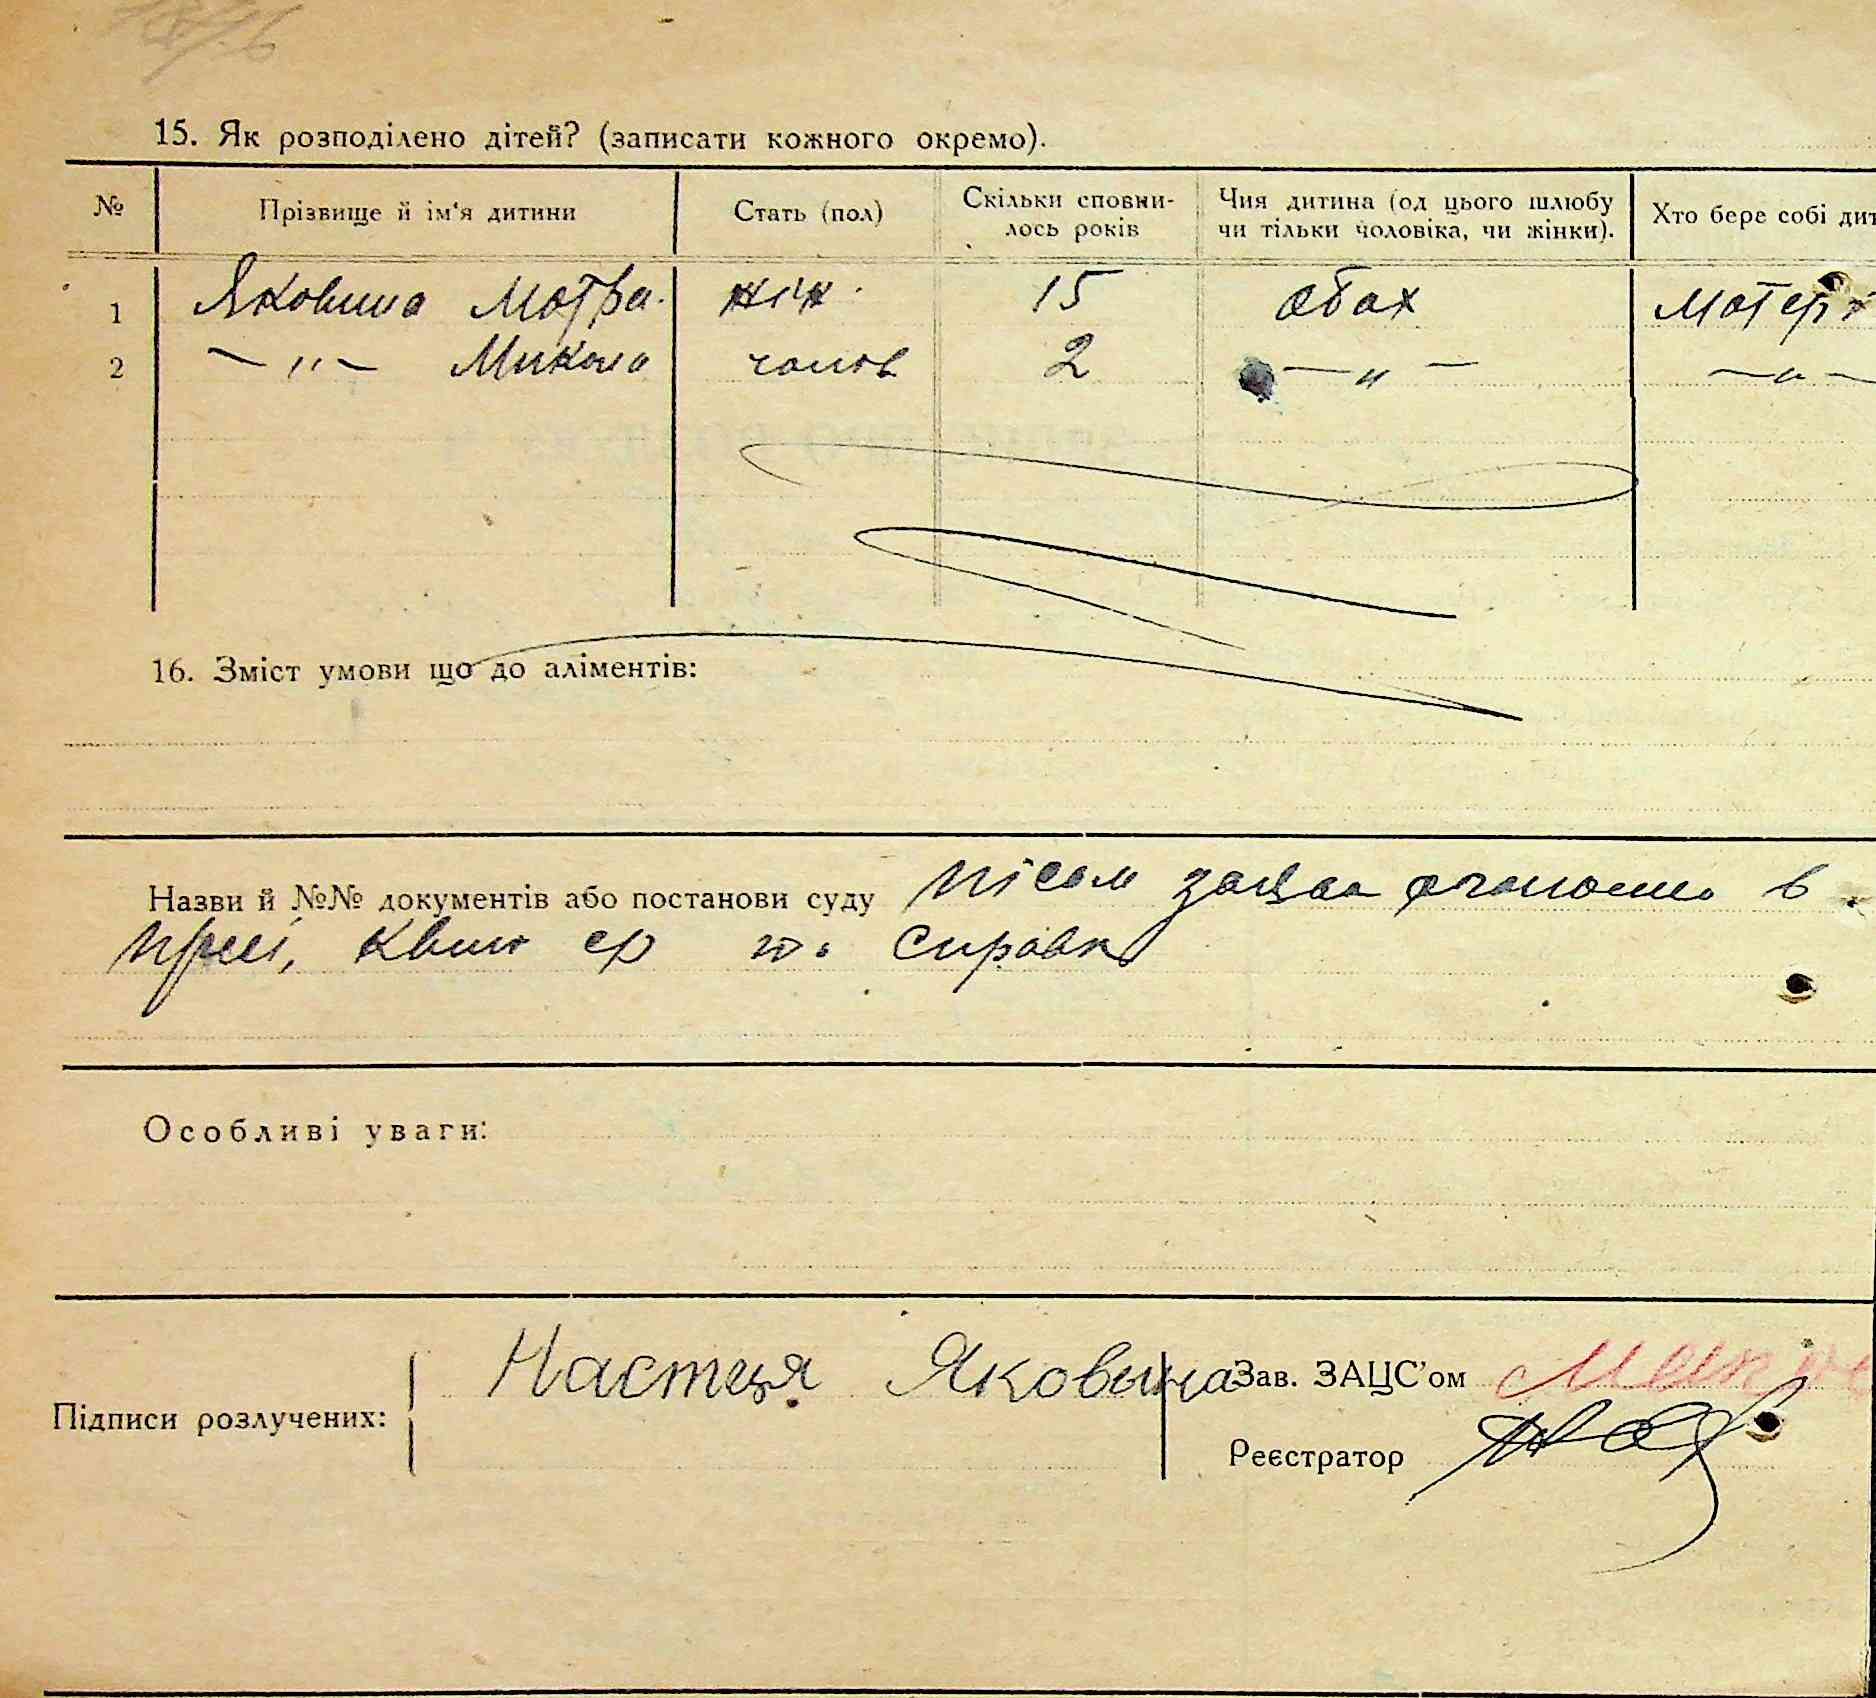 15. Як розподілено дітей? (записати кожного окремо).
№ Прізвище й ім'я дитини Стать (пол) Скільки сповни- лось років Чия дитина (од цього шлюбу чи тільки чоловіка, чи жінки). Хто бере собі дит
1 Яковина Мотра. жін. 15 обох матері
2 — " — Микола чолов 2 — " — — " —
16. Зміст умови що до аліментів:
Назви й №№ документів або постанови суду пісьм заява оголошен в
пресі, квит ср то. справк
Особливі уваги:
Настя Яковина Зав. ЗАЦС'ом
Підписи розлучених:
Реєстратор